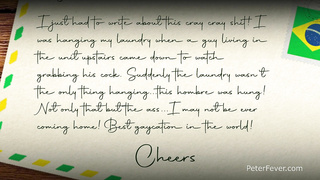 I just had to write about this cray cray shit! I
was hanging my laundry when a guy living in
the unit upstairs came down to watch
grabbing his cock. Suddenly the laundry wasn't
the only thing hanging...this hombre was hung!
Not only that but the ass...I may not be ever
coming home! Best gaycation in the world!
Cheers
PeterFever.com